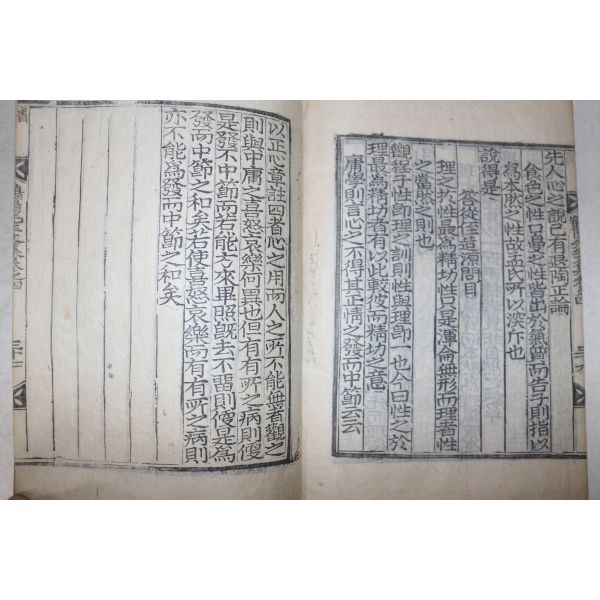 先人心之說已有退陶正論
食色之性口鼻之性皆出於氣質而告子則指以
爲本然之性故孟氏所以深斥也
說得是
答從侄 問目
理之於性最爲精切只是渾倫無形而理者性
之當然之則也
觀程子性即理之訓則性與理即一也今曰性之於
理最爲精切者有以此較彼而精切之意
庸學則言心之不得其正情之發而中節云云
以正心章註四者心之用而人之所不能無者觀之
則與中庸之喜怒哀樂何異也但有有所之病則便
是發不中節而若能方來畢照旣去不留則便是爲
發而中節之和矣若使喜怒哀樂而有有所之病則
亦不能爲發而中節之和矣